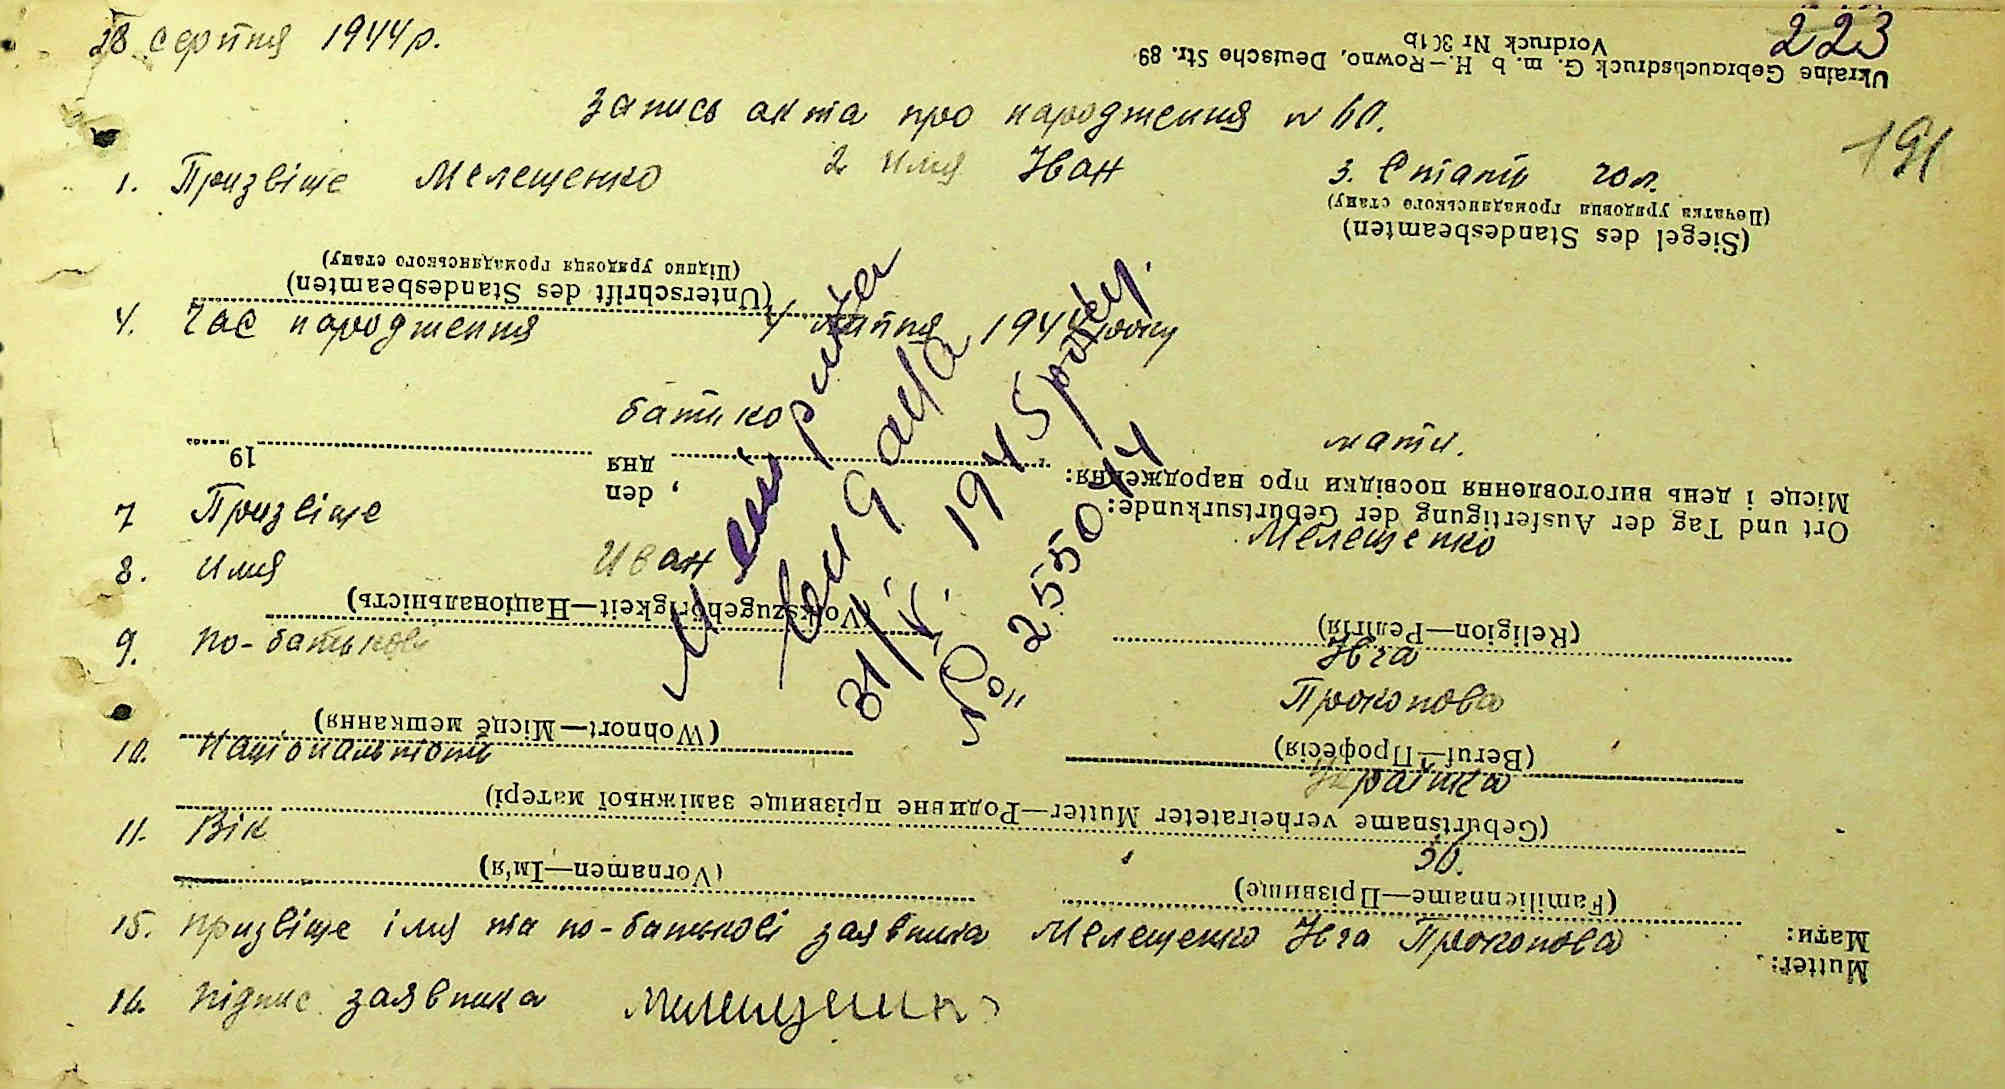 28 серпня 1944 р.
223
Ukraine Gebrauchsdruck G. m. b H.—Rowno, Deutsche Str. 89
Vordruck Nr 301b
Запись акта про народження № 60.
191
1. Призвіще Мелещенко 2 имя Іван 3. Стать чол.
(Печатка урядовця громадянського стану)
(Siegel des Standesbeamten)
(Підпис урядовця громадянського стану)
(Unterschrift des Standesbeamten)
4. Час народження 4 липня 1944 року
батько мати.
19
дня
den
Місце і день виготовлення посвідки про народження:
Ort und Tag der Ausfertigung der Geburtsurkunde:
7 Призвіще Мелещенко
8. имя Иван Івга
(Volkszugehörigkeit—Національність)
(Religion—Релігія)
9. по-батькові Прокопова
(Wohnort—Місце мешкання)
(Beruf—Професія)
10. Національность Українка
(Geburtsname verheirateter Mutter—Родинне прізвище заміжньої матері)
11. Вік 30.
(Vornamen—Ім'я)
(Familienname—Прізвище)
15. призвіще імя та по-батькові заявника Мелещенко Івга Прокопова
Мати:
Mutter:
16. підпис заявника Мелещенко
видана
31/V. 1945 року.
№ 255044